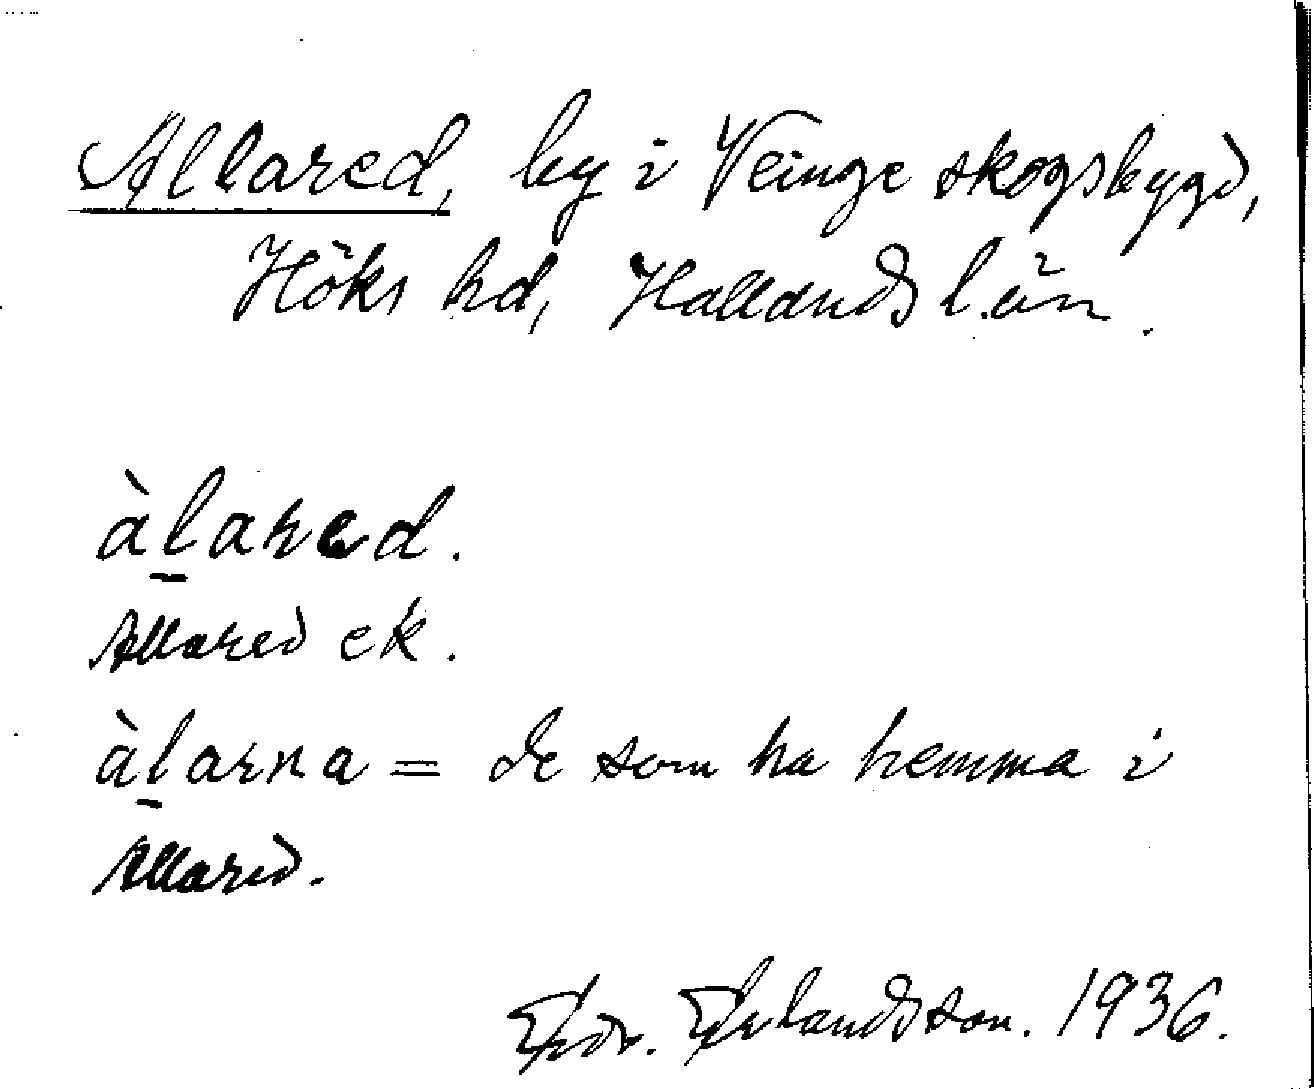 Allared, by i Veinge skogsbygd,
Höks hd, Hallands län.
àl̠ared.
Allared ek.
àl̠arna = de som ha hemma i
Allared.
Edv. Erlandsson. 1936.